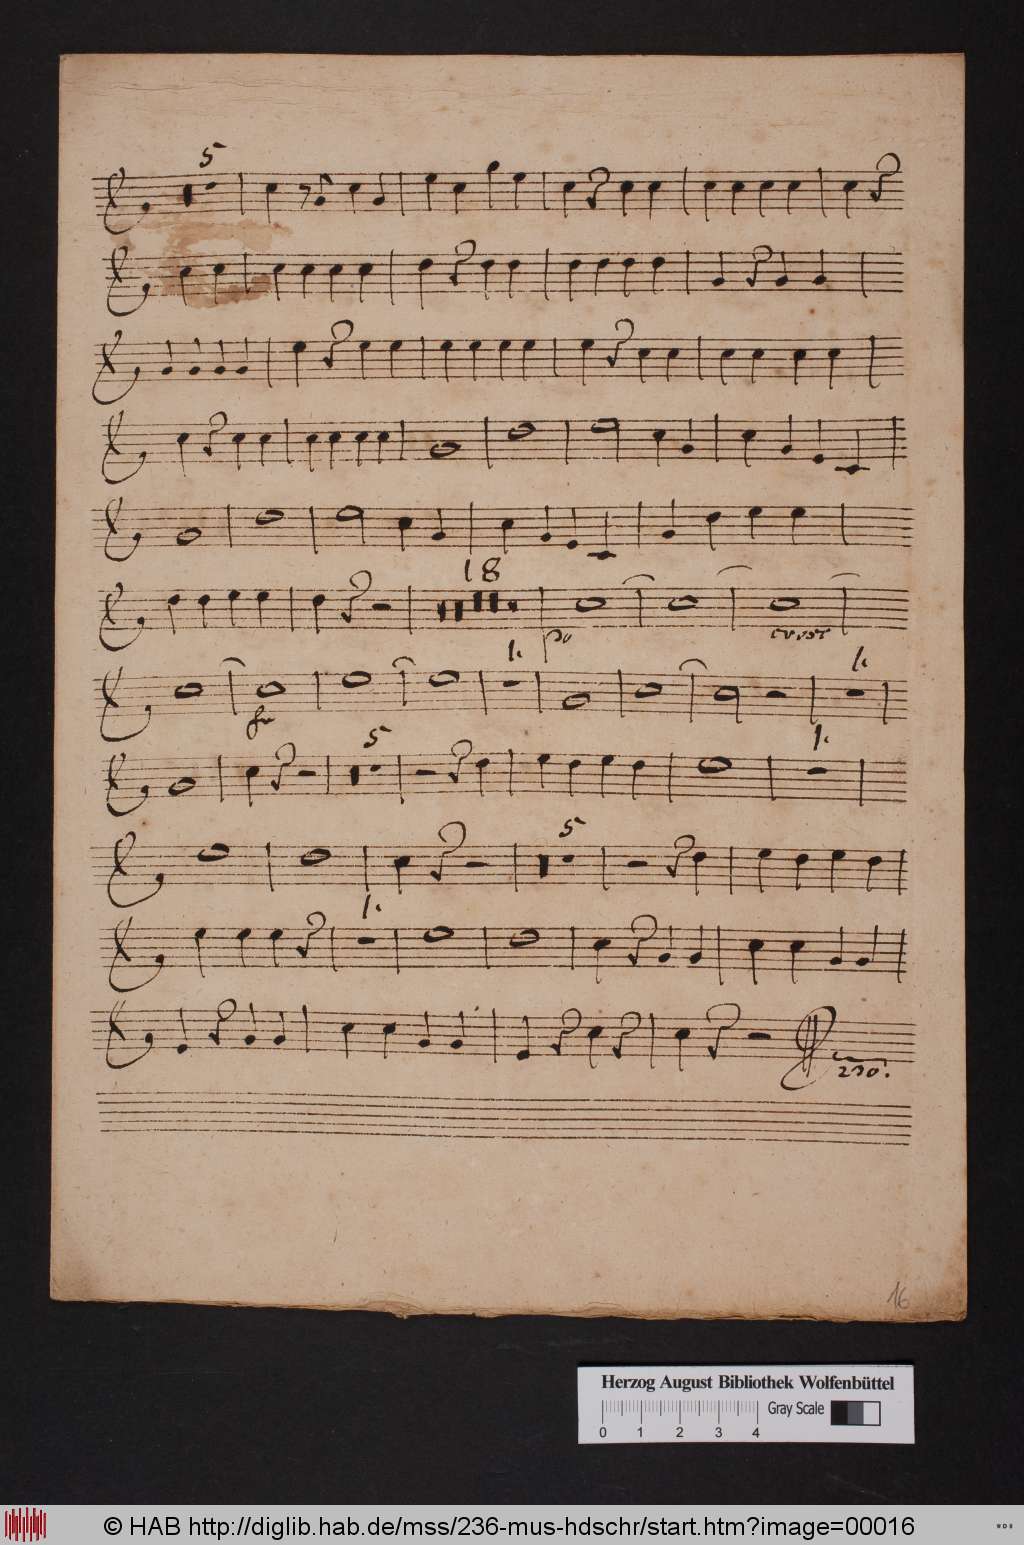 5
18
po
cresc
1.
1.
5
1.
5
1.
230.
16
Herzog August Bibliothek Wolfenbüttel
Gray Scale
0 1 2 3 4
© HAB http://diglib.hab.de/mss/236-mus-hdschr/start.htm?image=00016